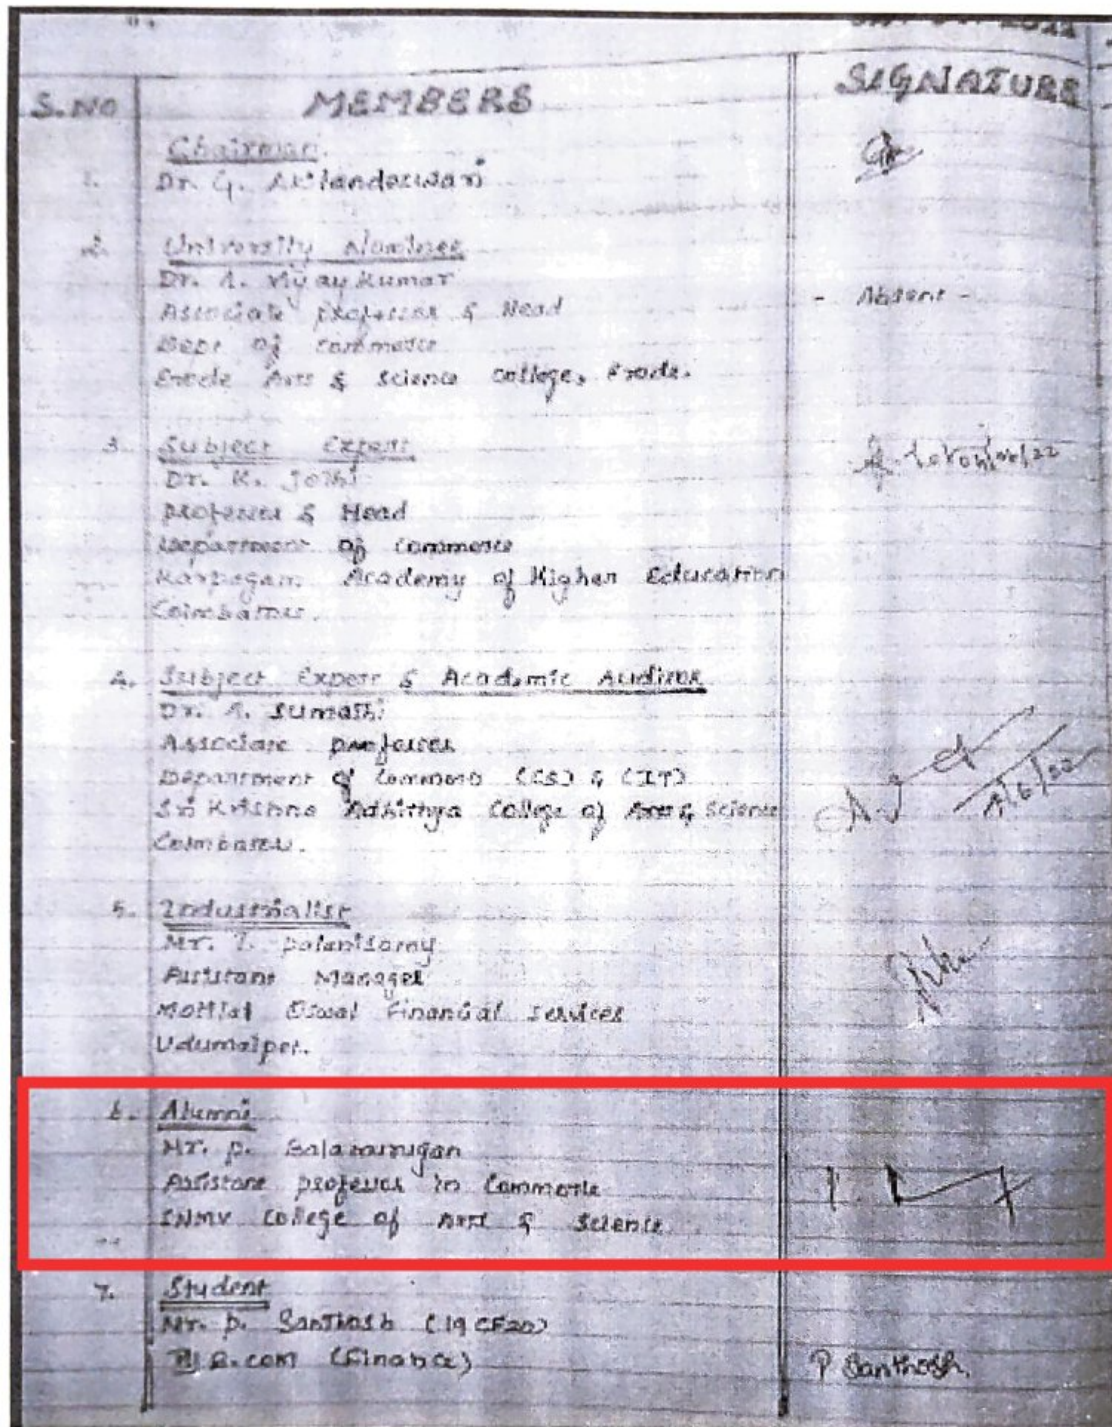 2022
S.NO MEMBERS SIGNATURE
Chairman
1. Dr. G. Akilandeswari
2. University Nominee
Dr. A. Vijay Kumar
Associate professor & Head - Absent -
Dept of commerce
Erode Arts & Science College, Erode.
3. Subject Expert
Dr. K. Jothi
professor & Head
Department of Commerce
Karpagam Academy of Higher Education
Coimbatore.
4. Subject Expert & Academic Auditor
Dr. A. Sumathi
Associate professor
Department of Commerce (CS) & (IT)
Sri Krishna Adhithya College of Arts & Science
Coimbatore.
5. Industrialist
Mr. palanisamy
Assistant Manager
Motilal Oswal Financial Services
Udumalpet.
6. Alumni
Mr. p. Balamurugan
Assistant professor in Commerce
SNMV College of Arts & Science
7. Student
Mr. p. Santhosh (19CF20)
B.com (Finance) P Santhosh.